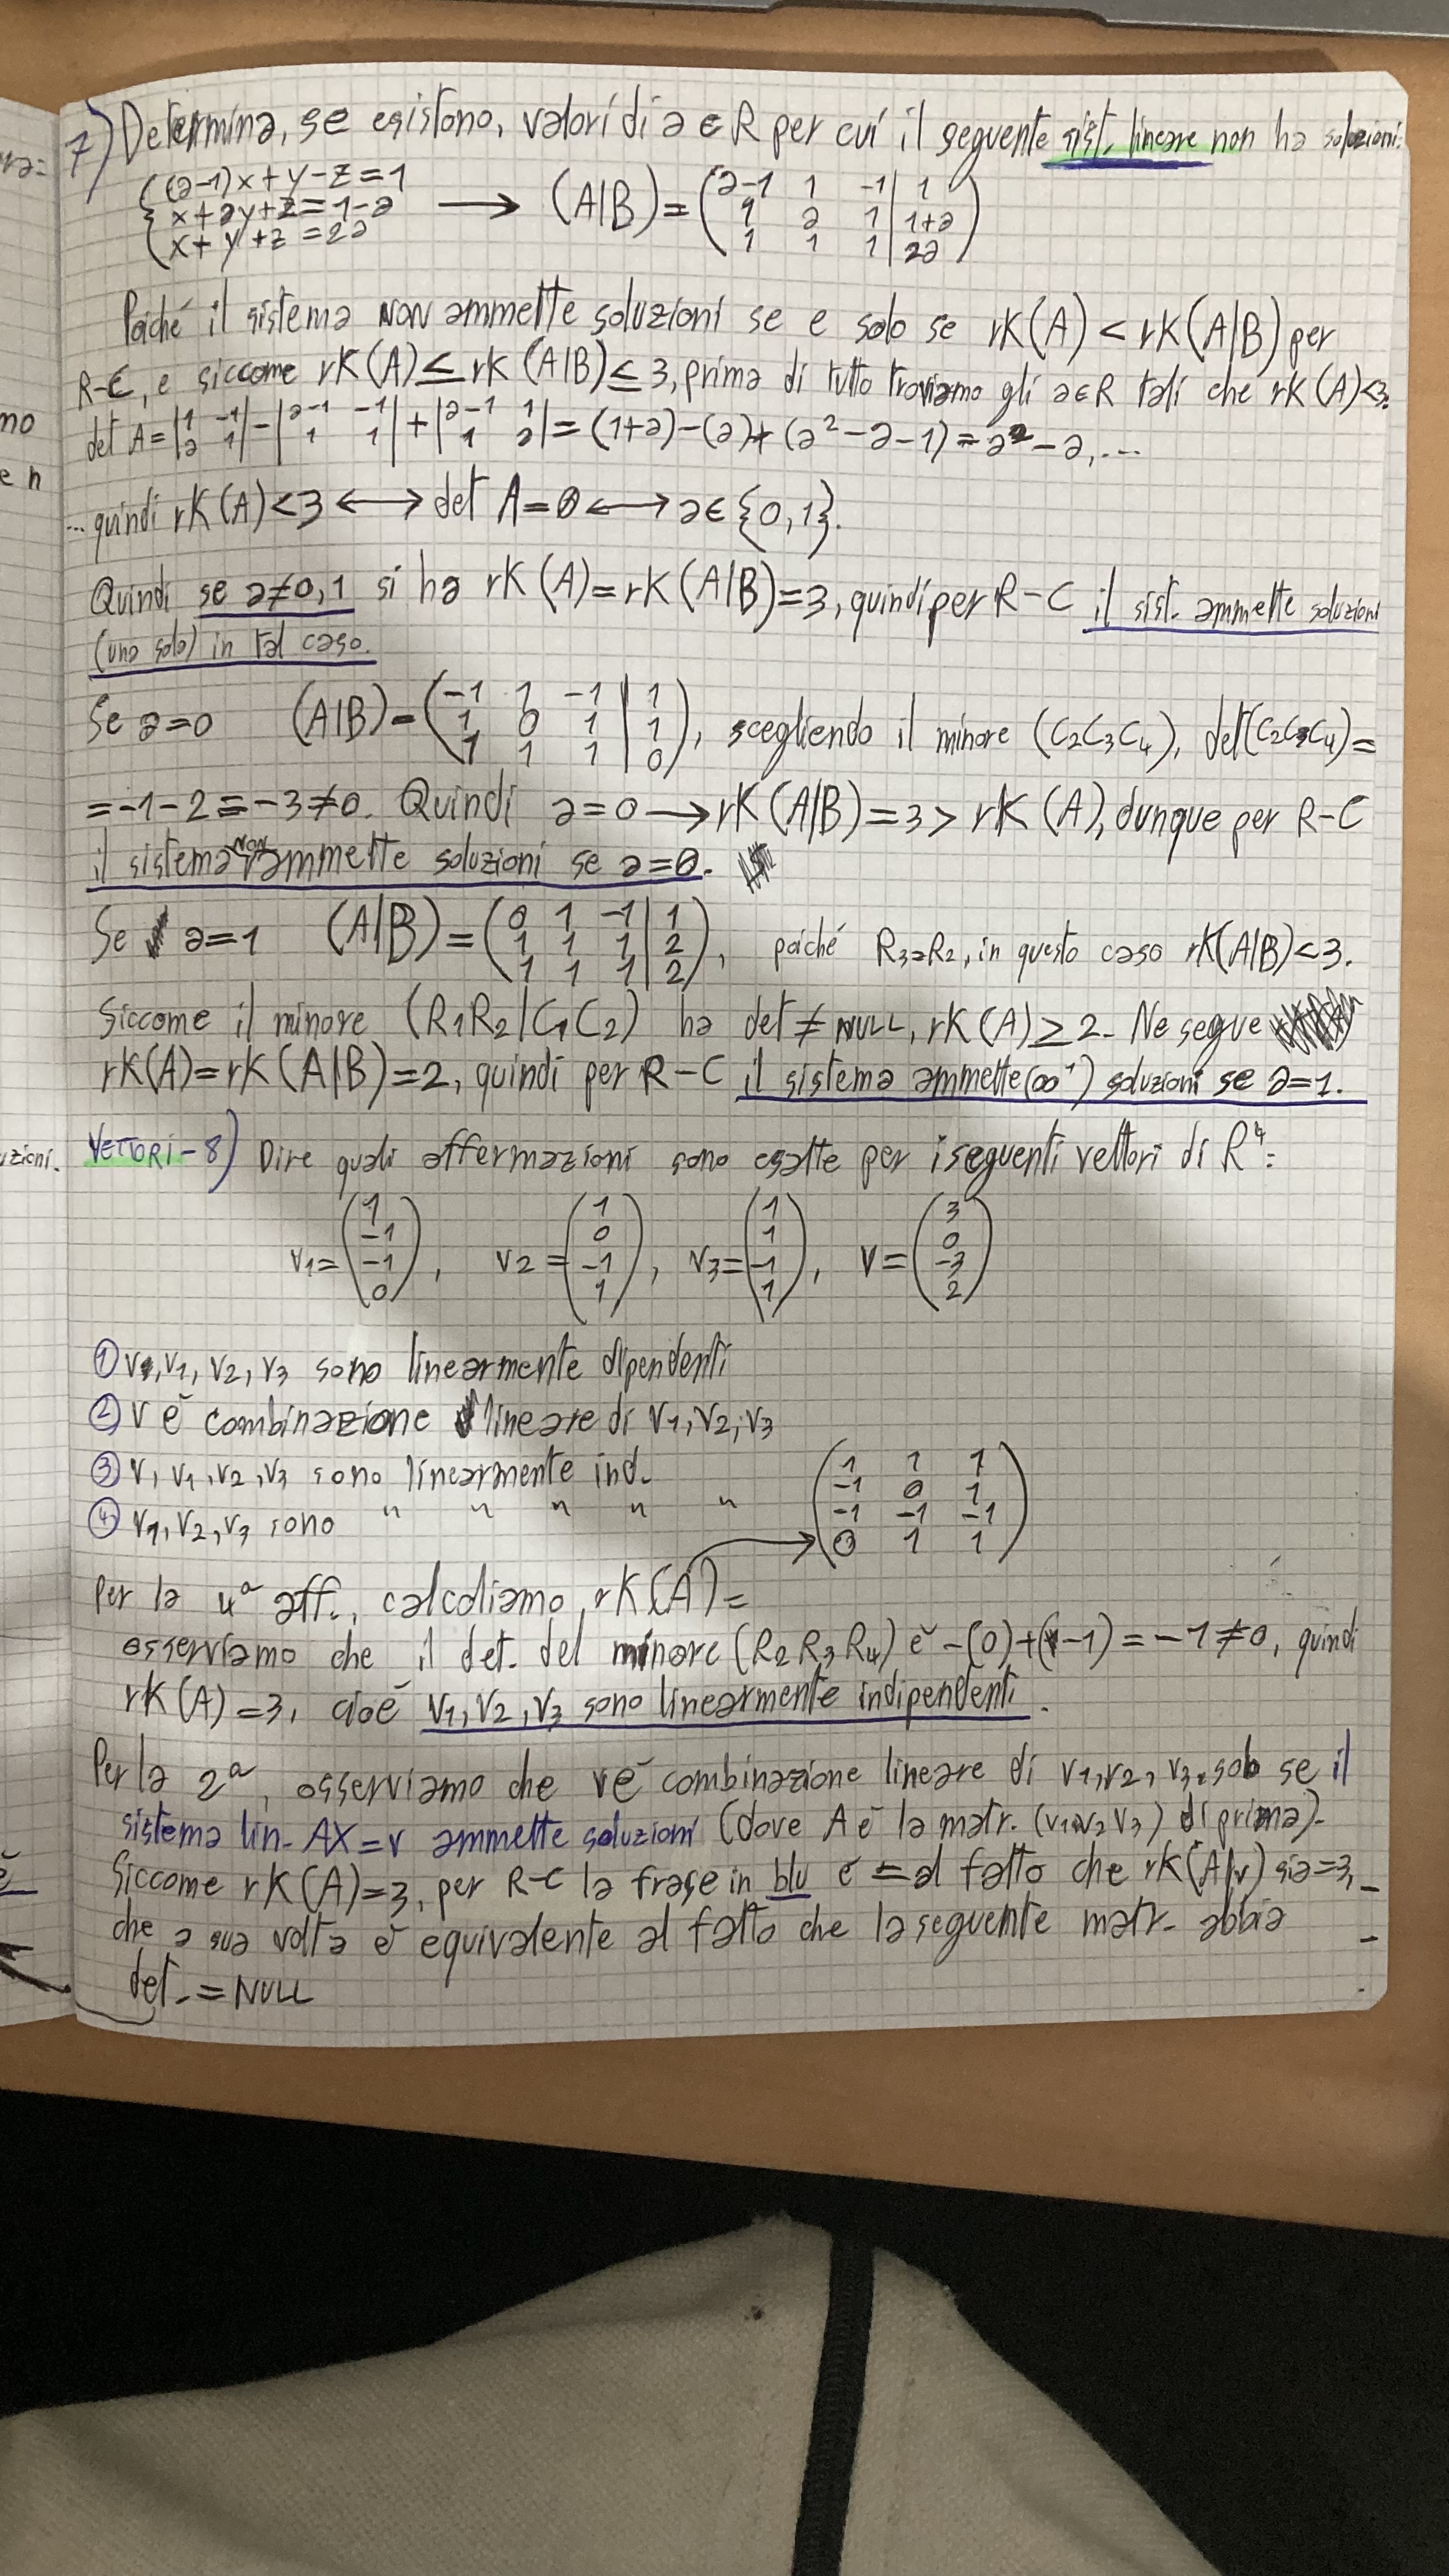 7) Determina, se esistono, valori di a ∈ R per cui il seguente sist. lineare non ha soluzioni:
{(a-1)x+y-z=1
{x+ay+z=1-a → (A|B)=(a-1 1 -1 | 1
{x+y+z=2a 1 a 1 | 1+a
1 1 1 | 2a)
Poiché il sistema NON ammette soluzioni se e solo se rK(A) < rK(A|B) per
R-C, e siccome rK(A) ≤ rK(A|B) ≤ 3, prima di tutto troviamo gli a∈R tali che rK(A)<3.
det A = |1 -1; a 1| - |a-1 -1; 1 1| + |a-1 1; 1 a| = (1+a)-(a)+(a²-a-1) = a²-a, ...
... quindi rK(A)<3 ↔ det A=0 ↔ a∈{0,1}.
Quindi se a≠0,1 si ha rK(A)=rK(A|B)=3, quindi per R-C il sist. ammette soluzioni
(una solo) in tal caso.
Se a=0 (A|B)=(-1 1 -1 | 1
1 0 1 | 1
1 1 1 | 0), scegliendo il minore (C2C3C4), det(C2C3C4)=
=-1-2=-3≠0. Quindi a=0 → rK(A|B)=3 > rK(A), dunque per R-C
il sistema NON ammette soluzioni se a=0.
Se a=1 (A|B)=(0 1 -1 | 1
1 1 1 | 2
1 1 1 | 2), poiché R3=R2, in questo caso rK(A|B)<3.
Siccome il minore (R1R2|C1C2) ha det ≠ NULL, rK(A) ≥ 2. Ne segue
rK(A)=rK(A|B)=2, quindi per R-C il sistema ammette (∞¹) soluzioni se a=1.
VETTORI - 8) Dire quali affermazioni sono esatte per i seguenti vettori di R⁴:
v1=(1 -1 -1 0), v2=(1 0 -1 1), v3=(1 1 -1 1), v=(3 0 -3 2)
① v, v1, v2, v3 sono linearmente dipendenti
② v è combinazione lineare di v1, v2, v3
③ v, v1, v2, v3 sono linearmente ind.
④ v1, v2, v3 sono " " " " "
(1 1 1
-1 0 1
-1 -1 -1
0 1 1)
Per la 4ª aff., calcoliamo rK(A)=
osserviamo che il det. del minore (R2R3R4) è -(0)+(-1)=-1≠0, quindi
rK(A)=3, cioè v1, v2, v3 sono linearmente indipendenti.
Per la 2ª, osserviamo che v è combinazione lineare di v1, v2, v3 solo se il
sistema lin. AX=v ammette soluzioni (dove A è la matr. (v1v2v3) di prima).
Siccome rK(A)=3, per R-C la frase in blu è = al fatto che rK(A|v) sia=3,
che a sua volta è equivalente al fatto che la seguente matr. abbia
det.=NULL